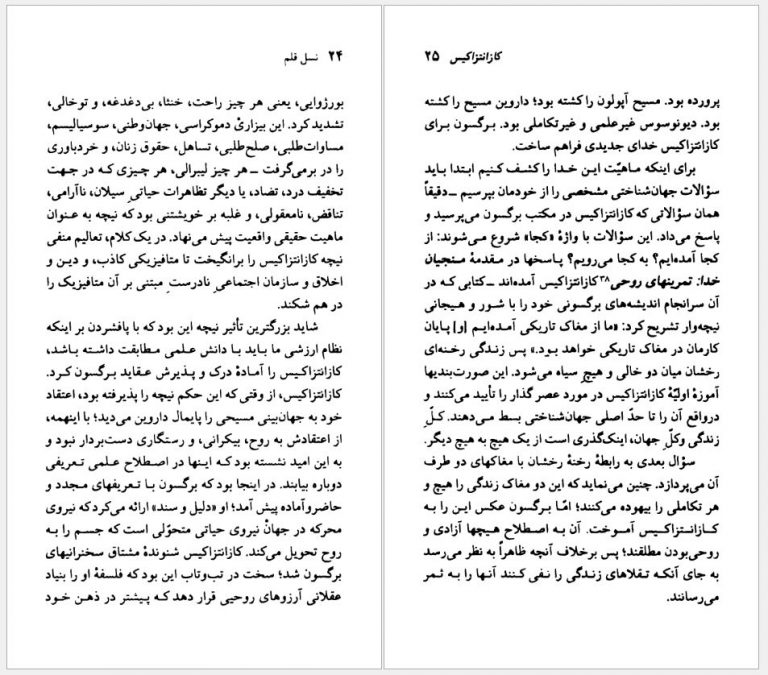 ۲۴ نسل قلم
بورژوایی، یعنی هر چیز راحت، خنثا، بی‌دغدغه، و توخالی،
تشدید کرد. این بیزاریْ دموکراسی، جهان‌وطنی، سوسیالیسم،
مساوات‌طلبی، صلح‌طلبی، تساهل، حقوق زنان، و خردباوری
را در برمی‌گرفت ــ هر چیز لیبرالی، هر چیزی که در جهت
تخفیف درد، تضاد، یا دیگر تظاهرات حیاتیِ سیلان، ناآرامی،
تناقض، نامعقولی، و غلبه بر خویشتنی بود که نیچه به عنوان
ماهیت حقیقی واقعیت پیش می‌نهاد. در یک کلام، تعالیم منفی
نیچه کازانتزاکیس را برانگیخت تا متافیزیکی کاذب، و دین و
اخلاق و سازمان اجتماعیِ نادرستِ مبتنی بر آن متافیزیک را
در هم شکند.
شاید بزرگترین تأثیر نیچه این بود که با پافشردن بر اینکه
نظام ارزشی ما باید با دانش علمی مطابقت داشته باشد،
کازانتزاکیس را آمادهٔ درک و پذیرش عقاید برگسون کرد.
کازانتزاکیس، از وقتی که این حکم نیچه را پذیرفته بود، اعتقاد
خود به جهان‌بینی مسیحی را پایمال داروین می‌دید؛ با اینهمه،
از اعتقادش به روح، بیکرانی، و رستگاری دست‌بردار نبود و
به این امید نشسته بود که اینها در اصطلاح علمی تعریفی
دوباره بیابند. در اینجا بود که برگسون با تعریفهای مجدد و
حاضروآماده پیش آمد؛ او «دلیل و سند» ارائه می‌کرد که نیروی
محرکه در جهانْ نیروی حیاتی متحوّلی است که جسم را به
روح تحویل می‌کند. کازانتزاکیس شنوندهٔ مشتاق سخنرانیهای
برگسون شد؛ سخت در تب‌وتاب این بود که فلسفهٔ او را بنیاد
عقلانی آرزوهای روحیی قرار دهد که پیشتر در ذهن خود
کازانتزاکیس ۲۵
پرورده بود. مسیح آپولون را کشته بود؛ داروین مسیح را کشته
بود. دیونوسوس غیرعلمی و غیرتکاملی بود. برگسون برای
کازانتزاکیس خدای جدیدی فراهم ساخت.
برای اینکه ماهیّت این خدا را کشف کنیم ابتدا باید
سؤالات جهان‌شناختی مشخصی را از خودمان بپرسیم ــ دقیقاً
همان سؤالاتی که کازانتزاکیس در مکتب برگسون می‌پرسید و
پاسخ می‌داد. این سؤالات با واژهٔ «کجا» شروع می‌شوند: از
کجا آمده‌ایم؟ به کجا می‌رویم؟ پاسخها در مقدمهٔ منجیان
خدا: تمرینهای روحی۳۸ کازانتزاکیس آمده‌اند ــ کتابی که در
آن سرانجام اندیشه‌های برگسونی خود را با شور و هیجانی
نیچه‌وار تشریح کرد: «ما از مغاک تاریکی آمده‌ایم [و] پایان
کارمان در مغاک تاریکی خواهد بود.» پس زندگی رخنه‌ای
رخشان میان دو خالی و هیچِ سیاه می‌شود. این صورت‌بندیها
آموزهٔ اولیّهٔ کازانتزاکیس در مورد عصر گذار را تأیید می‌کنند و
درواقع آن را تا حدّ اصلی جهان‌شناختی بسط می‌دهند. کلِّ
زندگی وکلِّ جهان، اینک‌گذری است از یک هیچ به هیچ دیگر.
سؤال بعدی به رابطهٔ رخنهٔ رخشان با مغاکهای دو طرف
آن می‌پردازد. چنین می‌نماید که این دو مغاک زندگی را هیچ و
هر تکاملی را بیهوده می‌کنند؛ امّا برگسون عکس این را به
کازانتزاکیس آموخت. آن به اصطلاح هیچها آزادی و
روحی‌بودن مطلقند؛ پس برخلاف آنچه ظاهراً به نظر می‌رسد
به جای آنکه تقلاهای زندگی را نفی کنند آنها را به ثمر
می‌رسانند.